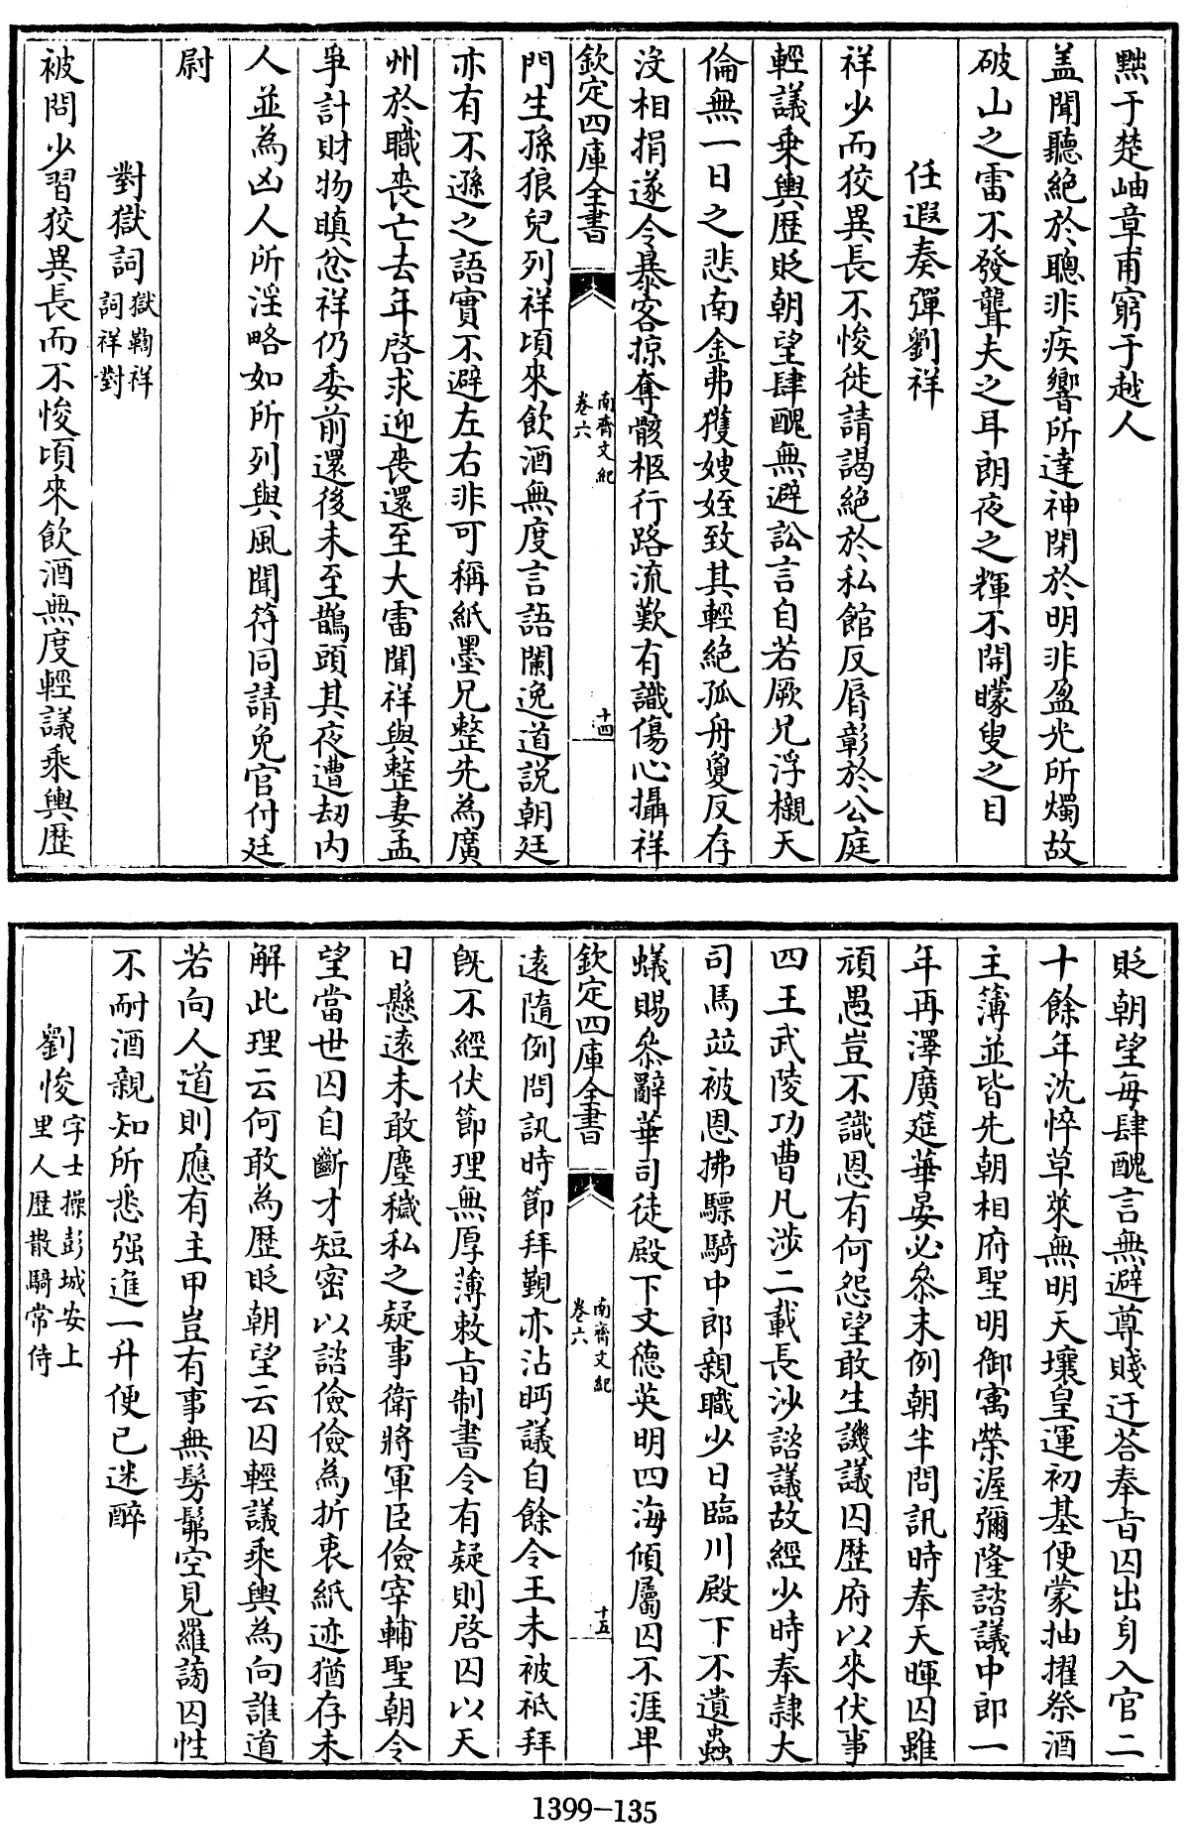 黜于楚岫章甫窮于越人
盖聞聽絶於聰非疾響所達神閉於明非盈光所燭故
破山之雷不發聾夫之耳朗夜之輝不開矇叟之目
任遐奏彈劉祥
祥少而狡異長不悛徙請謁絶於私館反脣彰於公庭
輕議乗輿歴貶朝望肆醜無避訟言自若厥兄浮櫬天
倫無一日之悲南金弗獲嫂姪致其輕絶孤舟敻反存
没相捐遂令暴客掠奪骸柩行路流歎有識傷心攝祥
欽定四庫全書
南齊文紀
卷六
十四
門生孫狼兒列祥頃來飲酒無度言語闌逸道説朝廷
亦有不遜之語實不避左右非可稱紙墨兄整先為廣
州於職喪亡去年啓求迎喪還至大雷聞祥與整妻孟
爭計財物瞋忿祥仍委前還後未至鵲頭其夜遭刼内
人並為凶人所淫略如所列與風聞符同請免官付廷
尉
對獄詞獄鞫祥
詞祥對
被問少習狡異長而不悛頃來飲酒無度輕議乘輿歴
貶朝望每肆醜言無避尊賤迂答奉㫖囚出身入官二
十餘年沈悴草萊無明天壤皇運初基便蒙抽擢祭酒
主簿並皆先朝相府聖明御㝢榮渥彌隆諮議中郎一
年再澤廣筵華晏必叅末例朝半問訊時奉天暉囚雖
頑愚豈不識恩有何怨望敢生譏議囚歴府以來伏事
四王武陵功曹凡涉二載長沙諮議故經少時奉隷大
司馬並被恩拂驃騎中郎親職少日臨川殿下不遺蟲
蟻賜叅辭華司徒殿下文德英明四海傾屬囚不涯卑
欽定四庫全書
南齊文紀
卷六
十五
遠隨例問訊時節拜覲亦沾眄議自餘令王未被祗拜
既不經伏節理無厚薄敕㫖制書令有疑則啓囚以天
日懸遠未敢塵穢私之疑事衛將軍臣儉宰輔聖朝令
望當世囚自斷才短密以諮儉儉為折衷紙迹猶存未
解此理云何敢為歴貶朝望云囚輕議乘輿為向誰道
若向人道則應有主甲豈有事無髣髴空見羅謗囚性
不耐酒親知所悉强進一升便已迷醉
劉悛字士操彭城安上
里人歴散騎常侍
1399-135